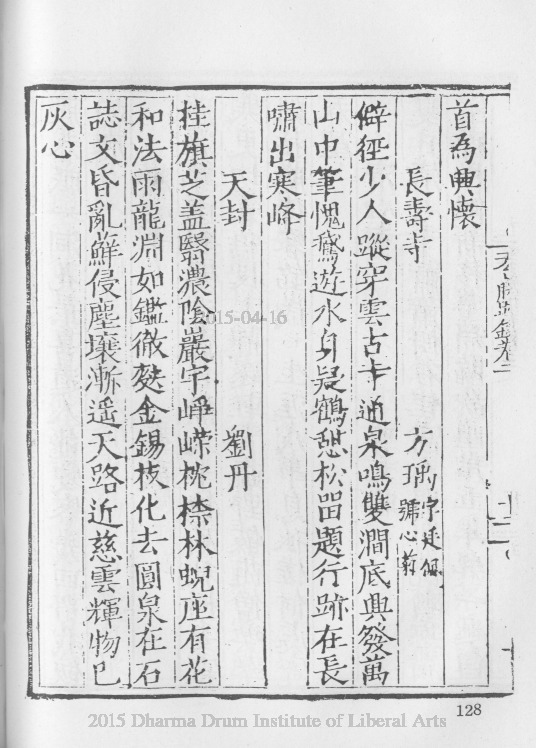 天台勝蹟錄卷二 十二
首為興懷
長壽寺 方瑀 字廷佩 號心
僻徑少人蹤穿雲古寺通泉鳴雙澗底興發萬
山中筆愧鸞遊水身疑鶴憩松畱題行跡在長
嘯出寒峰
天封 劉丹
挂旗芝盖翳濃陰巖宇崢嶸枕㮈林猊座有花
和法雨龍淵如鑑徹麩金錫杖化去圓泉在石
誌文昏亂蘚侵塵壤漸遥天路近慈雲輝物已
灰心
2015-04-16
128
2015 Dharma Drum Institute of Liberal Arts